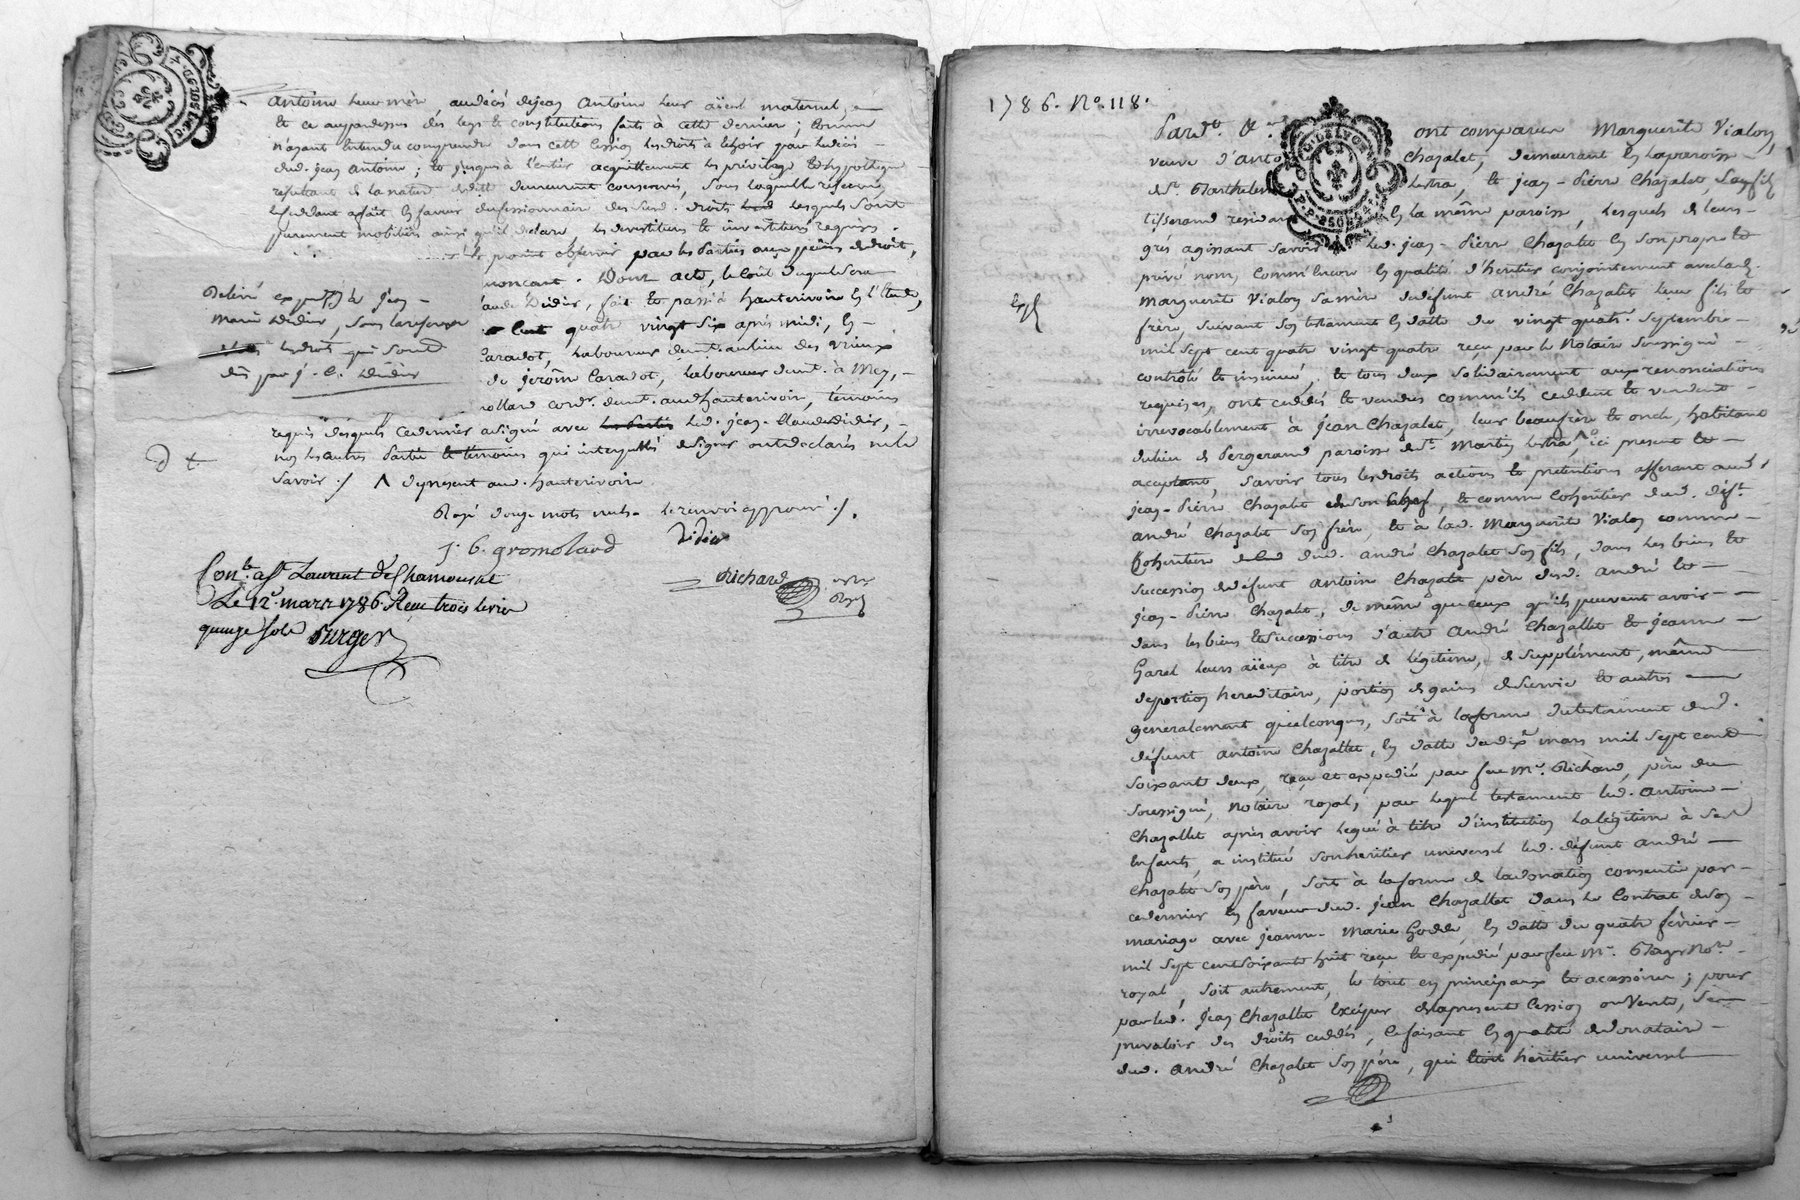 Antoine leur mère, audécès dejean Antoine leur aïeul maternel,
et ce aupardessus des legs et constitutions faits à cette dernier; comme
n'ayant entendu comprendre dans cette cession les droits à échoir par ledécès
dud. jean Antoine; et jusques à l'entier acquittement les privilege et hypotheque
résultant de la nature dudit demeurent conservés, sous laquelle reserve
lesquels sont
purement mobiliers ainsi qu'il déclare, les devestitures et investitures requises.
par les Parties aux peines de droit,
Dont acte, le coût duquel sera
Didier, fait et passé à hauterivoire en l'étude,
cent quatre vingt six après midi, en
Caradot, laboureur demt. au lieu des Vrieux
de jerôme Caradot, laboureur demt. à Mey,
cordr. demt. aud. hauterivoire, témoins
requis desquels ce dernier a signé avec led. jean-Claude Didier,
non les autres Partie et témoins qui interpellés de signer ont declarés ne le
savoir ./ Λ de présent aud. hauterivoire
Rayé douze mots nuls le renvoi approuvé ./.
Delivré expedon à jean
marie Didier, sous la reserve
les droits qui sont
dûs par j. C. Didier
J. B. gromoland Didier
Richard
Conlé. à St. Laurent de Chamousset
Le 12e. mars 1786. Reçu trois livres
quinze sols Purger
1786. No. 118.
Pardt. &a. ont comparu Marguerite Vialon,
veuve d'anto Chazalet, demeurant en la paroisse
de St. Barthelem lestra, et jean-Pierre Chazalet, son fils
tisserand residant en la même paroisse, lesquels de leurs
grés agissant savoir led. jean-Pierre Chazalet en son propre et
privé nom, comm'encore en qualité d'heritier conjointement avec lad.
Marguerite Vialon sa mère dudéfunt andré Chazalet leur fils et
frère, suivant son testament en datte du vingt quatre septembre
mil sept cent quatre vingt quatre reçu par le Notaire soussigné
contrôlé et insinué, et tous deux solidairement aux renonciations
requises, ont cedés et vendus comm'ils cedent et vendent
irrevocablement à jean Chazalet, leur beaufrère et oncle, habitant
dulieu de Pergerand paroisse de St. Martin lestra, ici present et
acceptant, savoir tous les droits actions et pretentions afferant aud.
jean-Pierre Chazalet de son chef, et comme Coheritier dud. déft.
andré Chazalet son frère, et à lad. Marguerite Vialon comme
Coheritiere dud. andré Chazalet son fils, dans les biens et
succession dudéfunt antoine Chazalet père desd. andré et
jean-Pierre Chazalet, de même que ceux qu'ils peuvent avoir
dans les biens et successions d'autre andré Chazallet et jeanne
Garel leurs aïeux à titre de légitime, de supplément, même
de portion hereditaire, portion de gains de survie et autres
généralement quelconques, soit à laforme du testament dud.
défunt antoine Chazallet, en datte dudix mars mil sept cent
soixante deux, reçu et expedié par feu Me. Richard, père du
soussigné, Notaire royal, par lequel testament led. antoine
Chazallet après avoir legué à titre d'institution la légitime à ses
Enfants, a institué son heritier universel led. défunt andré
Chazalet son père, soit à la forme de la donation consentie par
cedernier en faveur dud. jean Chazallet dans le Contrat de son
mariage avec jeanne-Marie Godde, en datte du quatre février
mil sept cent soixante huit reçu et expedié par feu Me. Nore.
royal, soit autrement, le tout en principaux et accessoires; pour
par led. jean Chazallet exciper de la presente Cession ou Vente, se
prevaloir des droits cedés, le faisant en qualité de donataire
dud. andré Chazalet son père, qui étoit héritier universel